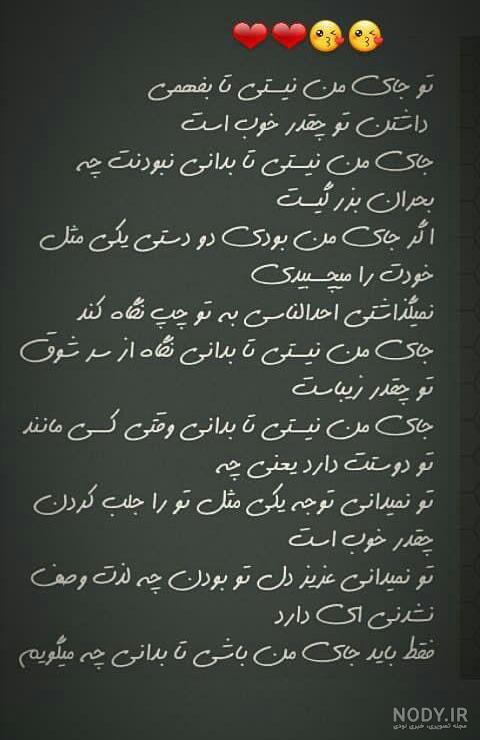 ❤❤😘😘
تو جای من نیستی تا بفهمی
داشتن تو چقدر خوب است
جای من نیستی تا بدانی نبودنت چه
بحران بزرگیست
اگر جای من بودی دو دستی یکی مثل
خودت را میچسبیدی
نمیگذاشتی احدالناسی به تو چپ نگاه کند
جای من نیستی تا بدانی نگاه از سر شوق
تو چقدر زیباست
جای من نیستی تا بدانی وقتی کسی مانند
تو دوستت دارد یعنی چه
تو نمیدانی توجه یکی مثل تو را جلب کردن
چقدر خوب است
تو نمیدانی عزیز دل تو بودن چه لذت وصف
نشدنی ای دارد
فقط باید جای من باشی تا بدانی چه میگویم
NODY.IR
مجله تصویری، خبری نودی